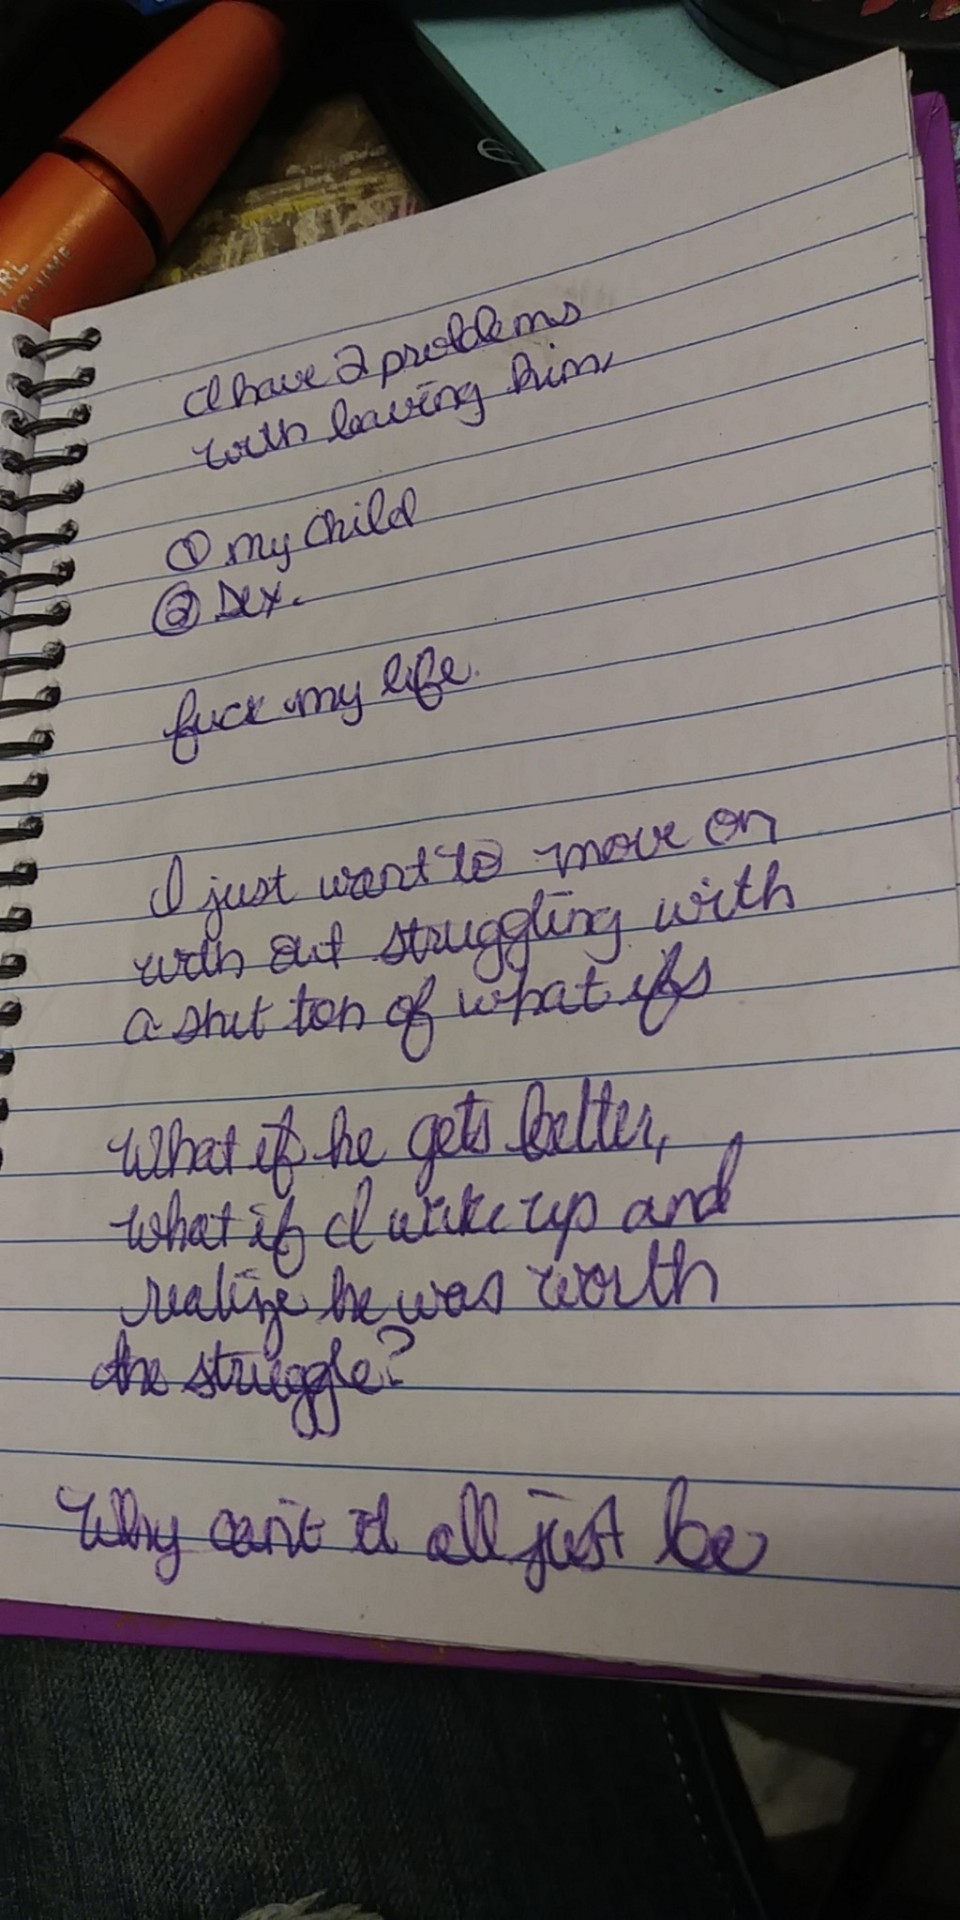 IRL
VOLUME
I have 2 problems
with leaving him,
① my child
② Dex.
fuck my life.
I just want to move on
with out struggling with
a shit ton of what ifs
What if he gets better,
what if I wake up and
realize he was worth
the struggle?
Why can't it all just be